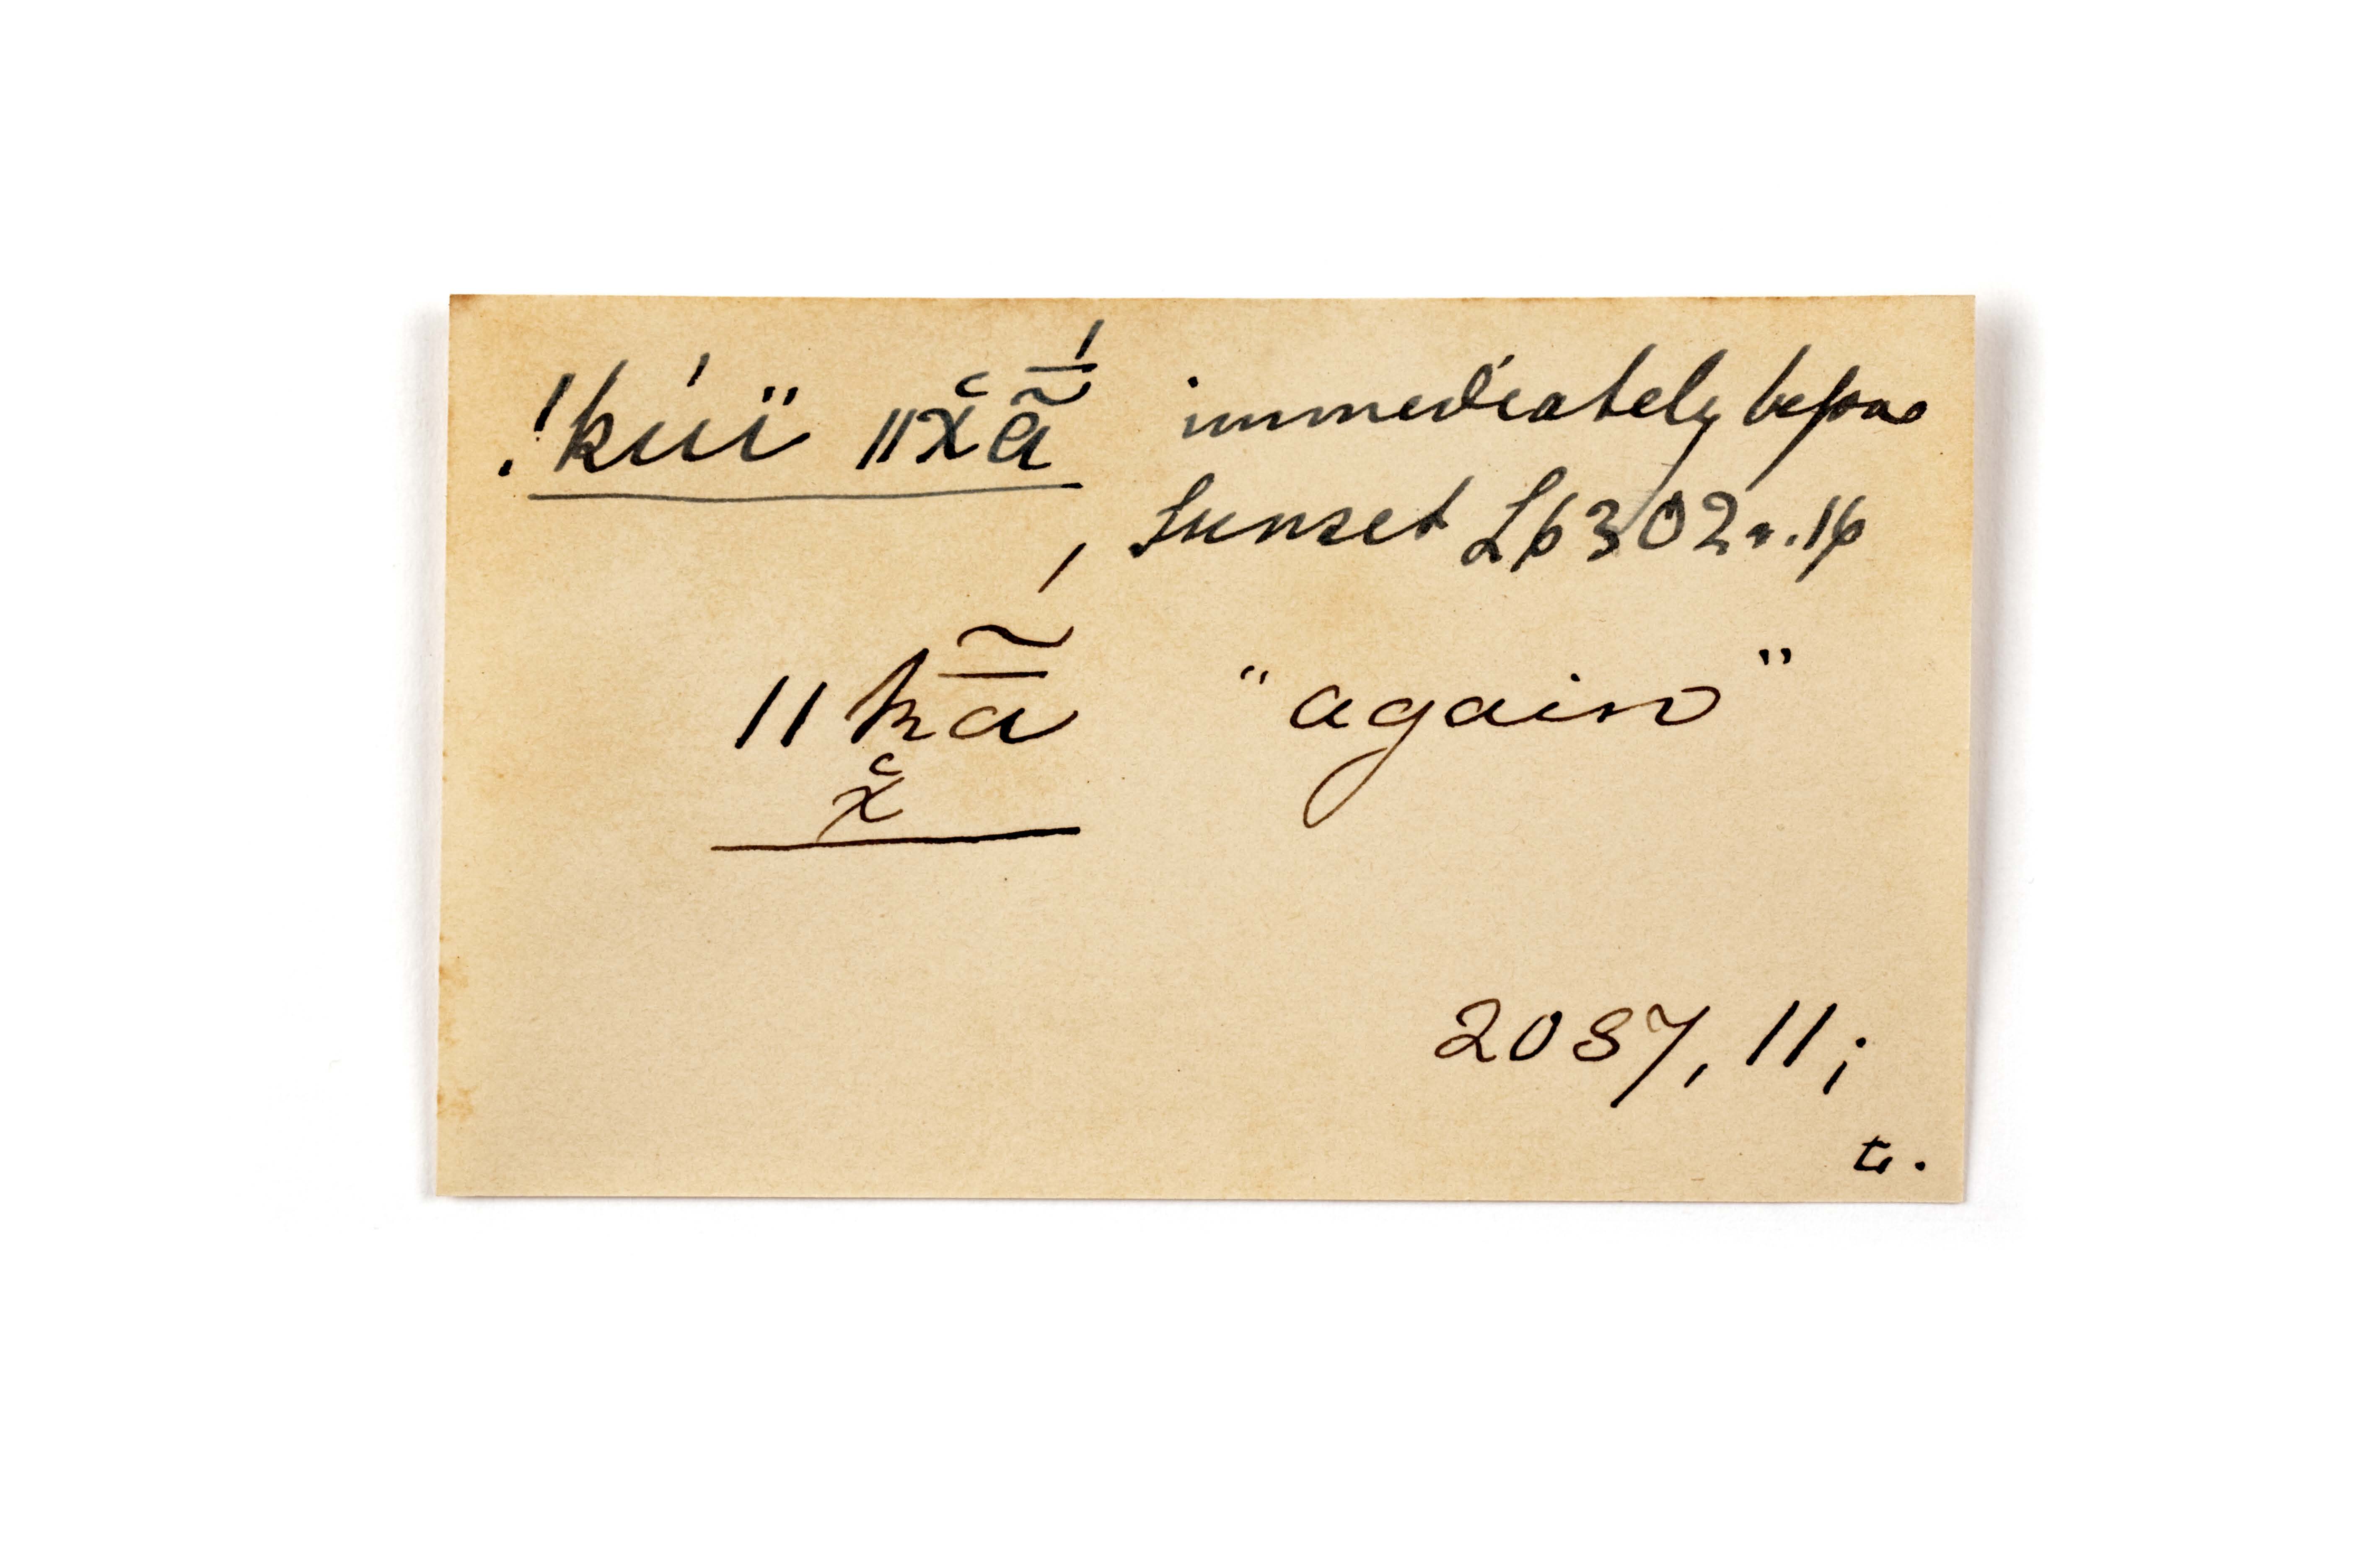 !kúï ǁx̆ã̄́ immediately before
Sunset L6302n.16
ǁkã̄́ "again"
x̆
2087, 11;
t.